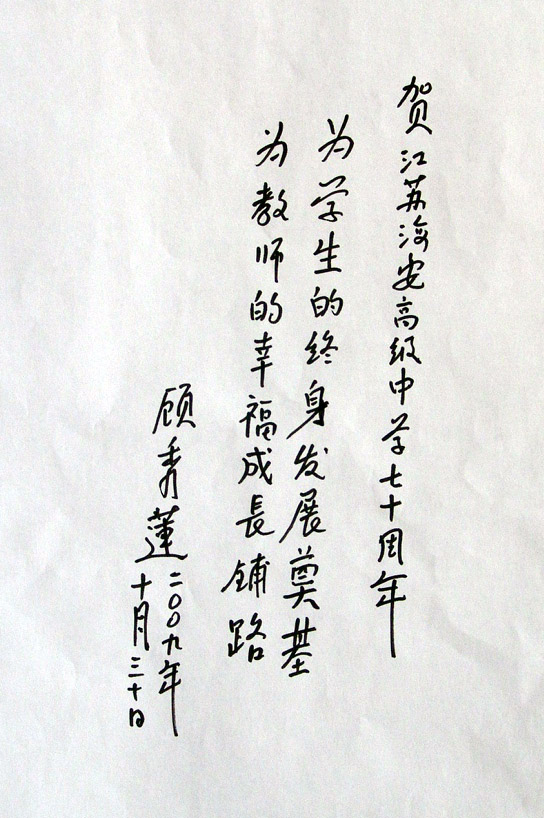 贺江苏海安高级中学七十周年
为学生的终身发展奠基
为教师的幸福成長铺路
顾秀蓮
二〇〇九年
十月三十日